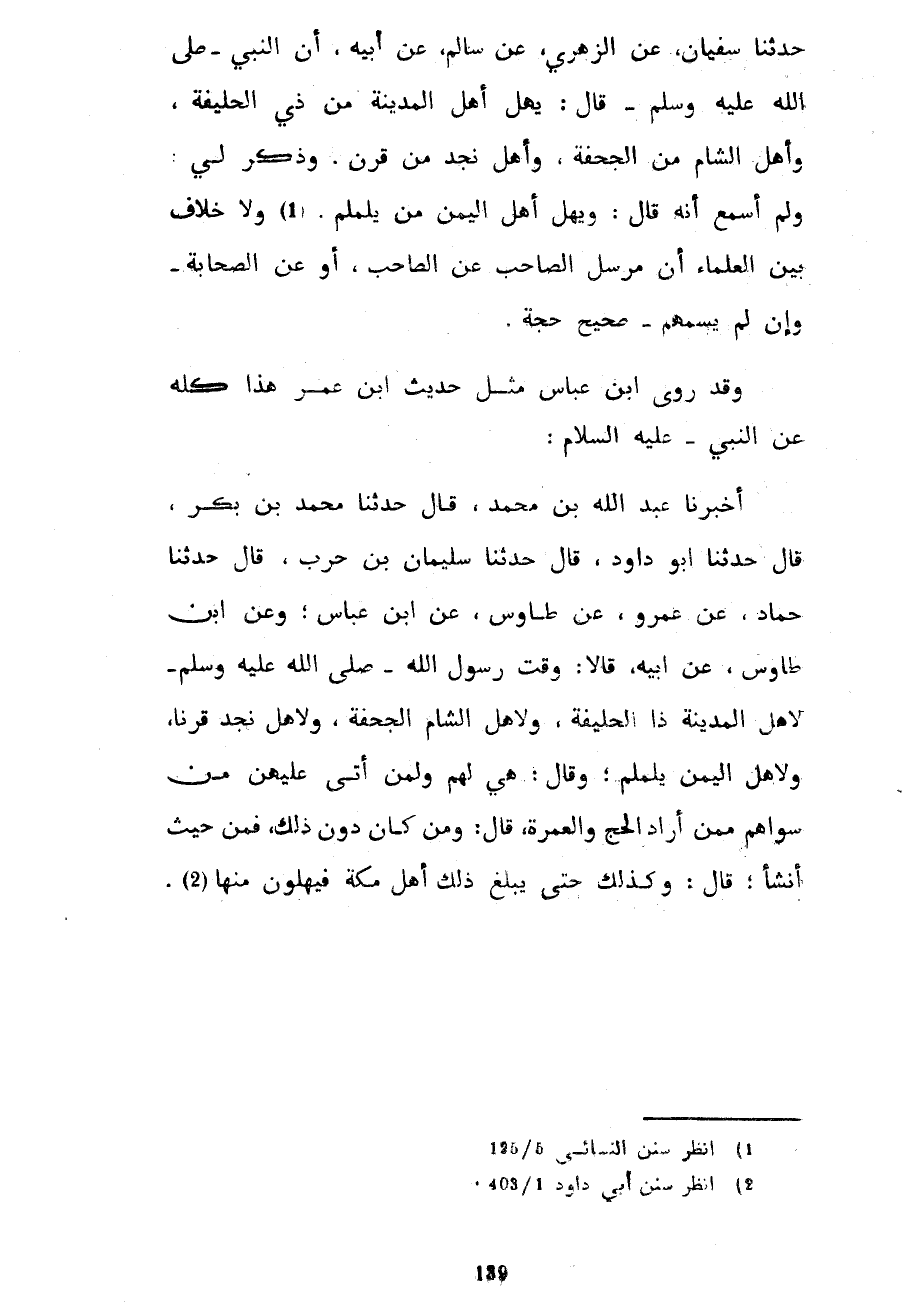 حدثنا سفيان، عن الزهري، عن سالم، عن أبيه ، أن النبي ـ صلى
الله عليه وسلم ـ قال : يهل أهل المدينة من ذي الحليفة ،
وأهل الشام من الجحفة ، وأهل نجد من قرن . وذكر لي :
ولم أسمع أنه قال : ويهل أهل اليمن من يلملم . (1) ولا خلاف
بين العلماء أن مرسل الصاحب عن الصاحب ، أو عن الصحابة ـ
وإن لم يسمهم ـ صحيح حجة .
وقد روى ابن عباس مثل حديث ابن عمر هذا كله
عن النبي ـ عليه السلام :
أخبرنا عبد الله بن محمد ، قال حدثنا محمد بن بكر ،
قال حدثنا ابو داود ، قال حدثنا سليمان بن حرب ، قال حدثنا
حماد ، عن عمرو ، عن طاوس ، عن ابن عباس ؛ وعن ابن
طاوس ، عن ابيه، قالا: وقت رسول الله ـ صلى الله عليه وسلم ـ
لاهل المدينة ذا الحليفة ، ولاهل الشام الجحفة ، ولاهل نجد قرنا،
ولاهل اليمن يلملم ؛ وقال : هي لهم ولمن أتى عليهن من
سواهم ممن أراد الحج والعمرة، قال: ومن كان دون ذلك، فمن حيث
أنشأ ؛ قال : وكذلك حتى يبلغ ذلك أهل مكة فيهلون منها (2) .
1) انظر سنن النسائي 5/125
2) انظر سنن أبي داود 1/403 .
139